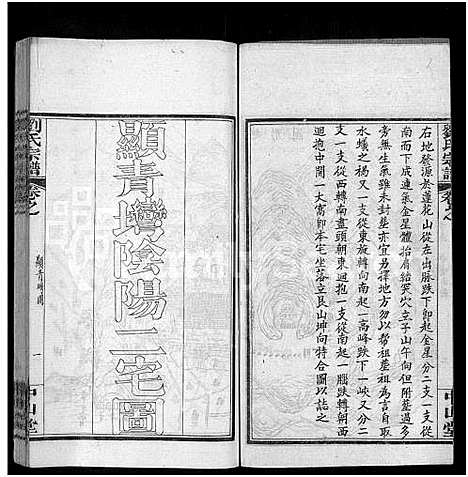 劉氏宗譜
卷之
中山堂
右地發源於蓮花山從左出脉跌下起金星分二支一支從
南而下成連氣金星體抬肩結突穴立子山午向但附墓過多
無生氣雖未封墓亦宜另擇吉方勿以幫祖墓爲孝可免
水蟻之楊又一支從東旋轉向南起一高峰跌下一峽又分二
支一支從西轉南盡頭朝東迴抱一支從南起一腦跌轉朝西
迴抱中開一大窩卽本宅坐落立艮山坤向特合圖以誌之
顯青塆陰陽二宅圖
劉氏宗譜
卷之
一
中山堂